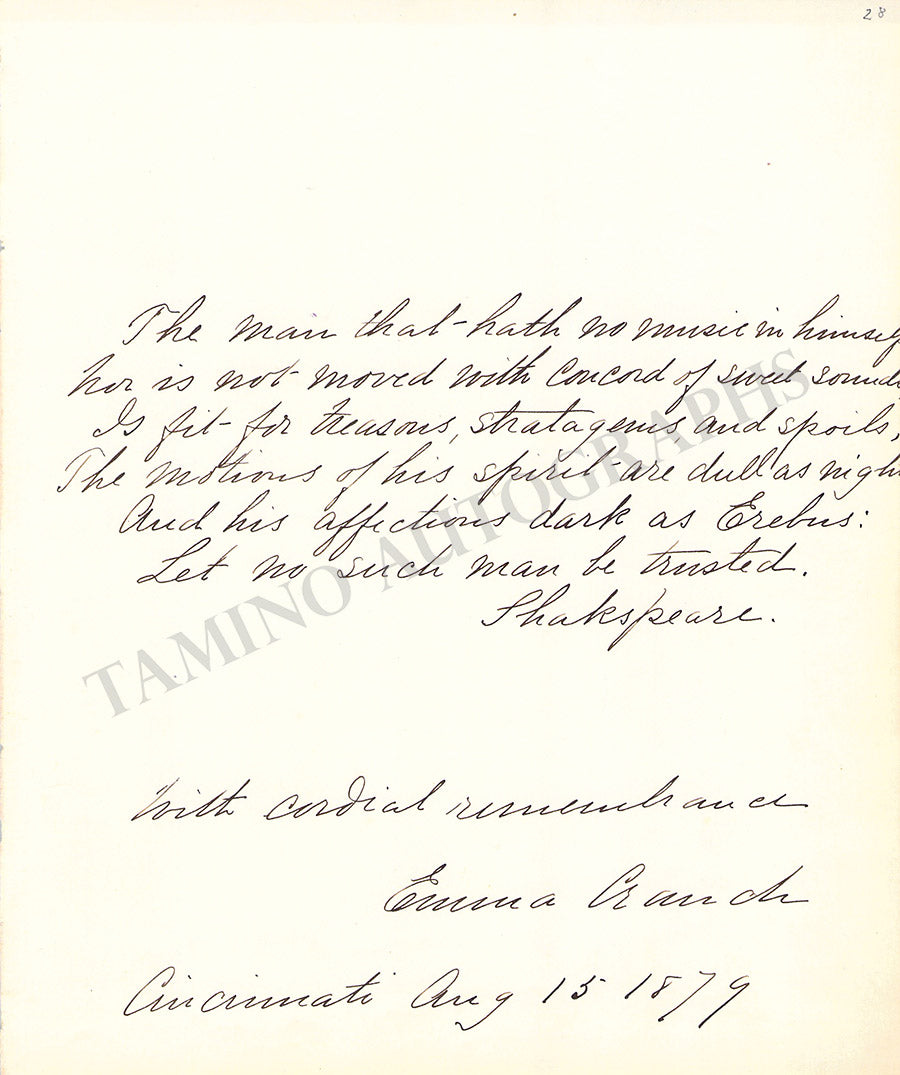 28
The man that hath no music in himself
Nor is not moved with concord of sweet sounds
Is fit for treasons, stratagems and spoils,
The motions of his spirit are dull as night
And his affections dark as Erebus:
Let no such man be trusted.
Shakspeare.
TAMINO AUTOGRAPHS
With cordial remembrance
Emma Cranch
Cincinnati Aug 15 1879